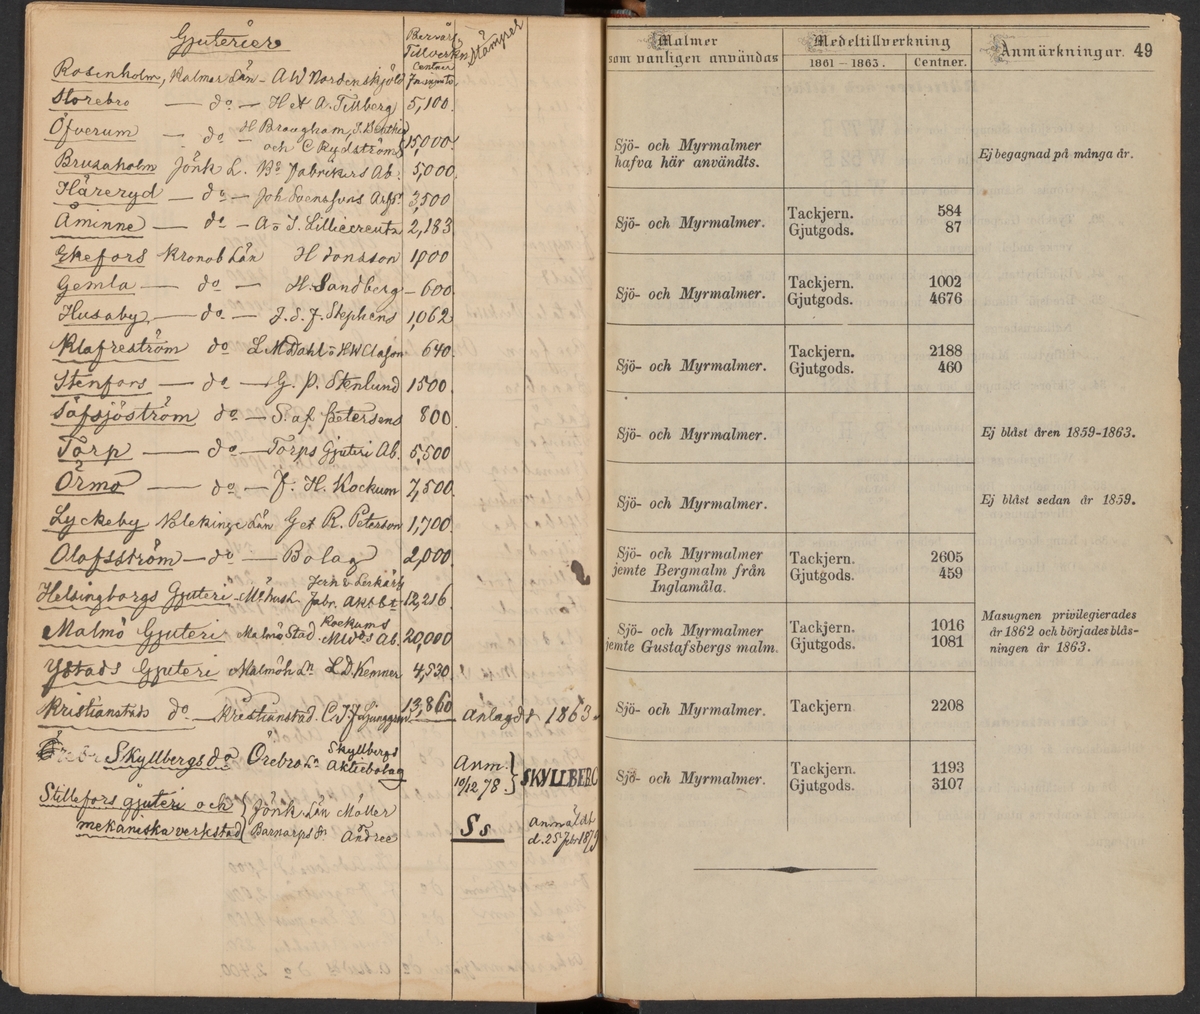 Gjuterier
Bevärs
Tillverkn
Centner
Stämpel
Rosenholm, Kalmar Län - A W Nordenskjöld
Storebro — do — H et A. Tillberg 5,100.
Öfverum — do H Brougham, J.
och C Rydström 15,000
Brusaholm Jönk L. Bs Fabrikers Ab. 5,000
Häreryd — do — Joh Svenssons 3,500
Åminne — do — A o S. Lilliecreutz 2,183
Ekefors Kronob Län H Jonsson 1,000
Gemla — do — H. Sandberg — 600.
Husaby — do — J. S. F. Stephens 1,062
Klafreström do L M Dahl o H W Clason 640.
Stenfors — do — G. P. Stenlund 1500.
Säfsjöström do — S. af Petersens 800
Torp — do — Torps Gjuteri Ab. 5,500
Örmo — do — F. H. Kockum 7,500.
Lyckeby Blekinge Län G et R. Peterson 1,700.
Olofsström — do — Bolag 2,000.
Helsingborgs Gjuteri - Möhus L. Fabr. Aktb. 12,216.
Malmö Gjuteri Malmö Stad. Kockums MWds Ab. 20,000
Ystads Gjuteri Malmöh Ln L. D. Kemner 4,530.
Kristianstads do — Kristianstad. C. J. F. Ljunggren 13,860 Anlagdt 1863.
Skyllbergs do Örebro Ln Skyllbergs
Aktiebolag
Anm.
10/12 78 } SKYLLBERG
Stillefors gjuteri och
mekaniska verkstad
Jönk. Län Möller
Barnarps Sn Andree
Ss
Anmäldt
d. 25 Febr 1879
Malmer
som vanligen användas
Medeltillverkning
1861 - 1863. Centner.
Anmärkningar. 49
Sjö- och Myrmalmer
hafva här användts.
Ej begagnad på många år.
Sjö- och Myrmalmer. Tackjern. 584
Gjutgods. 87
Sjö- och Myrmalmer. Tackjern. 1002
Gjutgods. 4676
Sjö- och Myrmalmer. Tackjern. 2188
Gjutgods. 460
Sjö- och Myrmalmer. Ej blåst åren 1859-1863.
Sjö- och Myrmalmer. Ej blåst sedan år 1859.
Sjö- och Myrmalmer
jemte Bergmalm från
Inglamåla.
Tackjern. 2605
Gjutgods. 459
Sjö- och Myrmalmer
jemte Gustafsbergs malm.
Tackjern. 1016
Gjutgods. 1081
Masugnen privilegierades
år 1862 och börjades blås-
ningen år 1863.
Sjö- och Myrmalmer. Tackjern 2208
Sjö- och Myrmalmer. Tackjern. 1193
Gjutgods. 3107